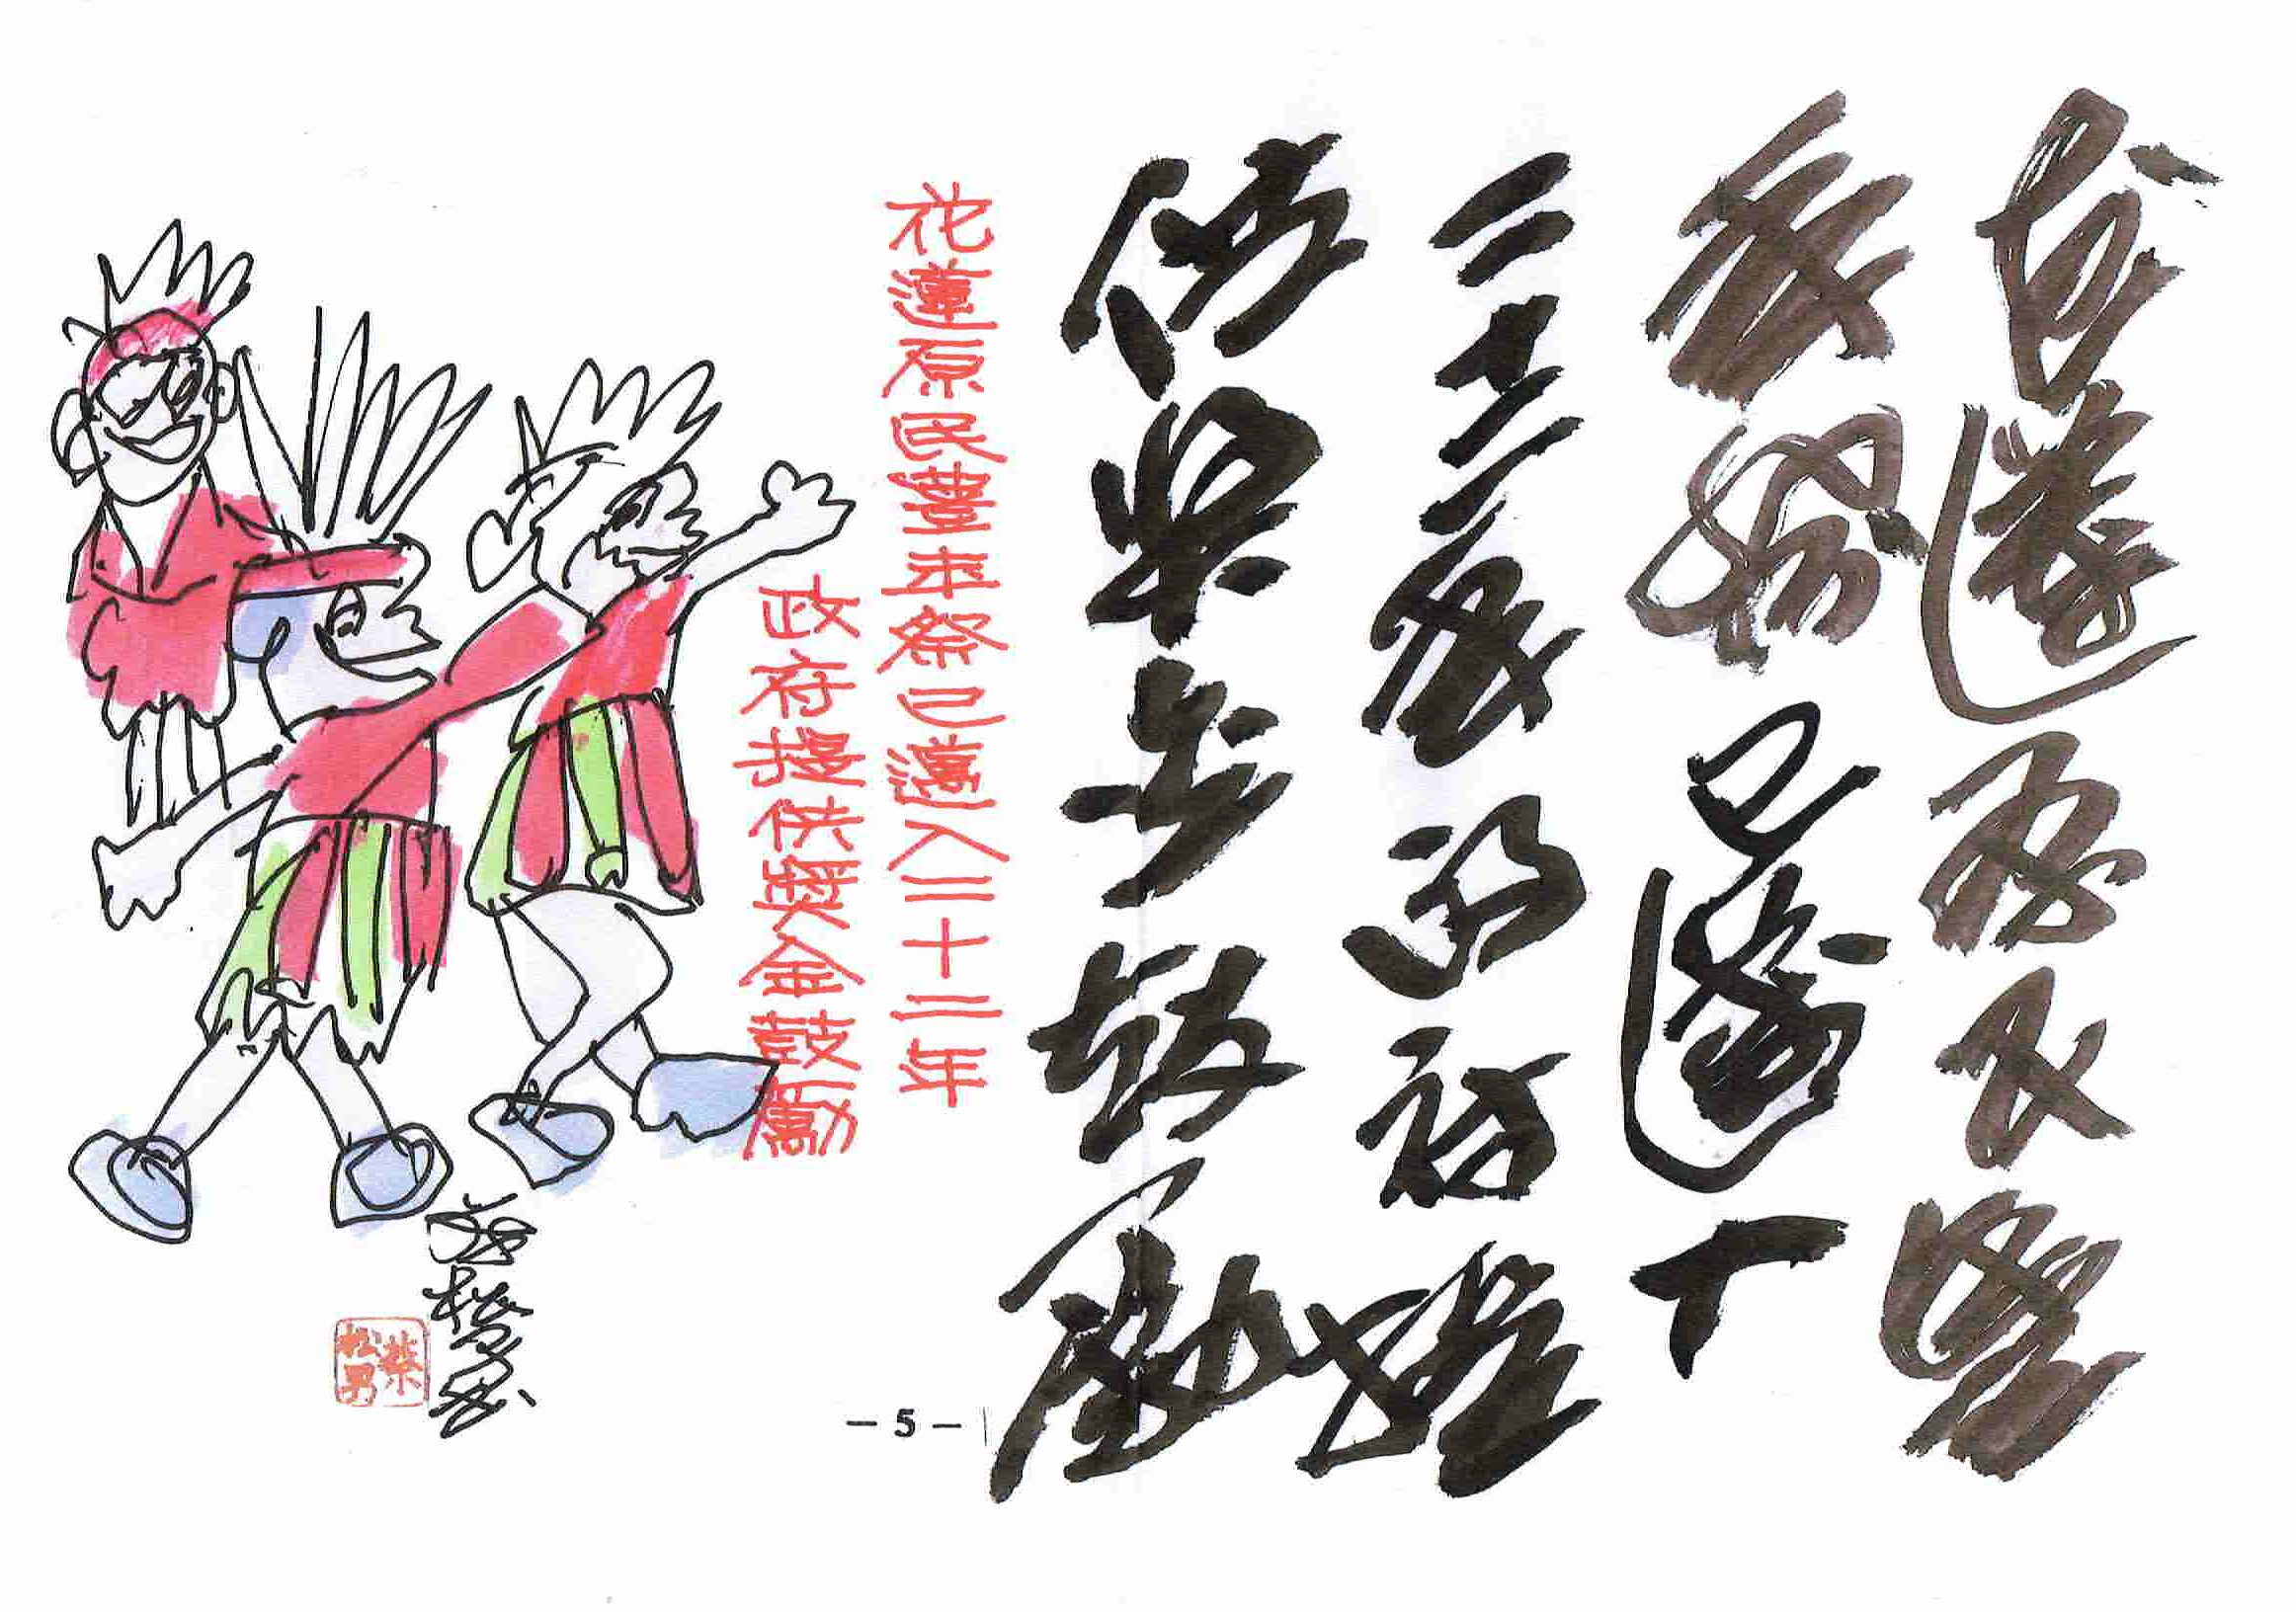 花蓮原民豐
年祭已邁入
二十二年政府提
供獎金鼓勵
花蓮原民豐年祭已邁入二十二年
政府提供獎金鼓勵
蔡松男
蔡松男
- 5 -